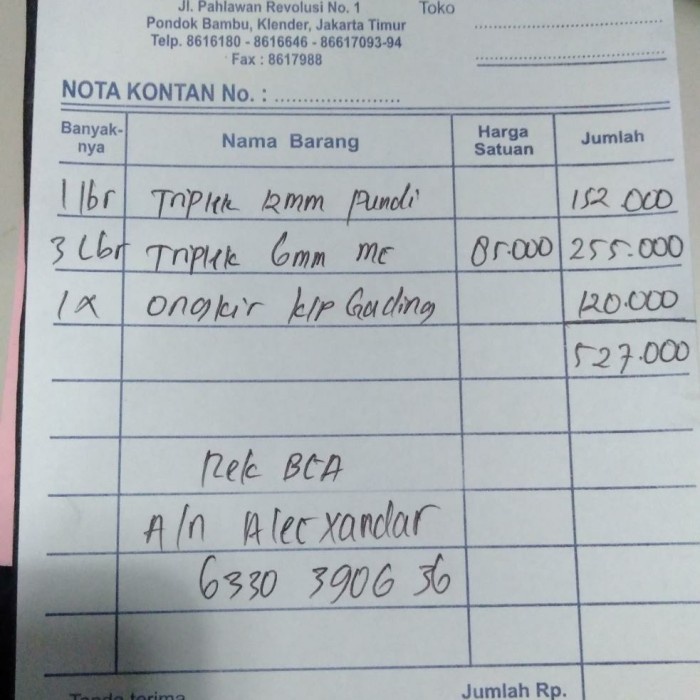 Jl. Pahlawan Revolusi No. 1
Pondok Bambu, Klender, Jakarta Timur
Telp. 8616180 - 8616646 - 86617093-94
Fax : 8617988
Toko
NOTA KONTAN No. :
Banyak-nya Nama Barang Harga Satuan Jumlah
1 lbr Triplek 12mm Pundi 152.000
3 Lbr Triplek 6mm MC 85.000 255.000
1x ongkir klp Gading 120.000
527.000
Rek BCA
A/n Alecxandar
6330 3906 36
Tanda terima Jumlah Rp.